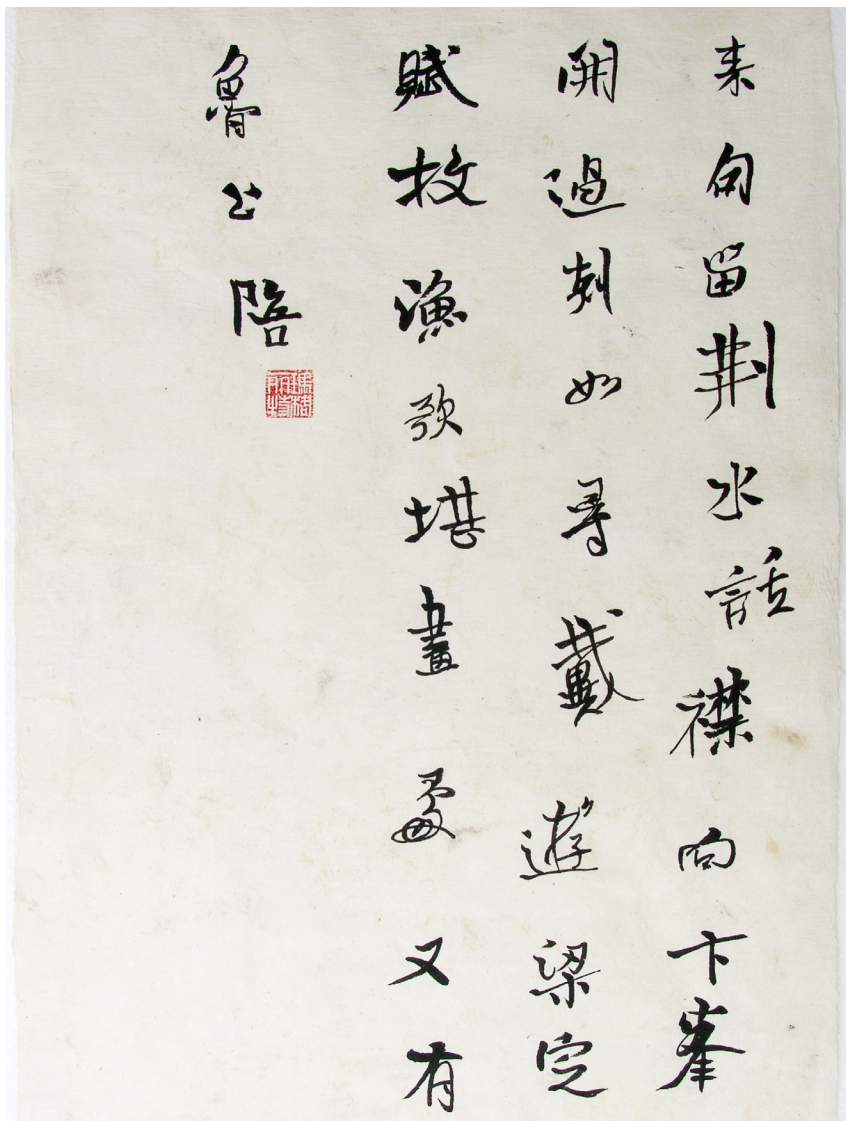 来句留荆水話襟向卞峯
開過剡如尋戴遊梁定
賦枚漁歌堪畫處又有
魯公陪